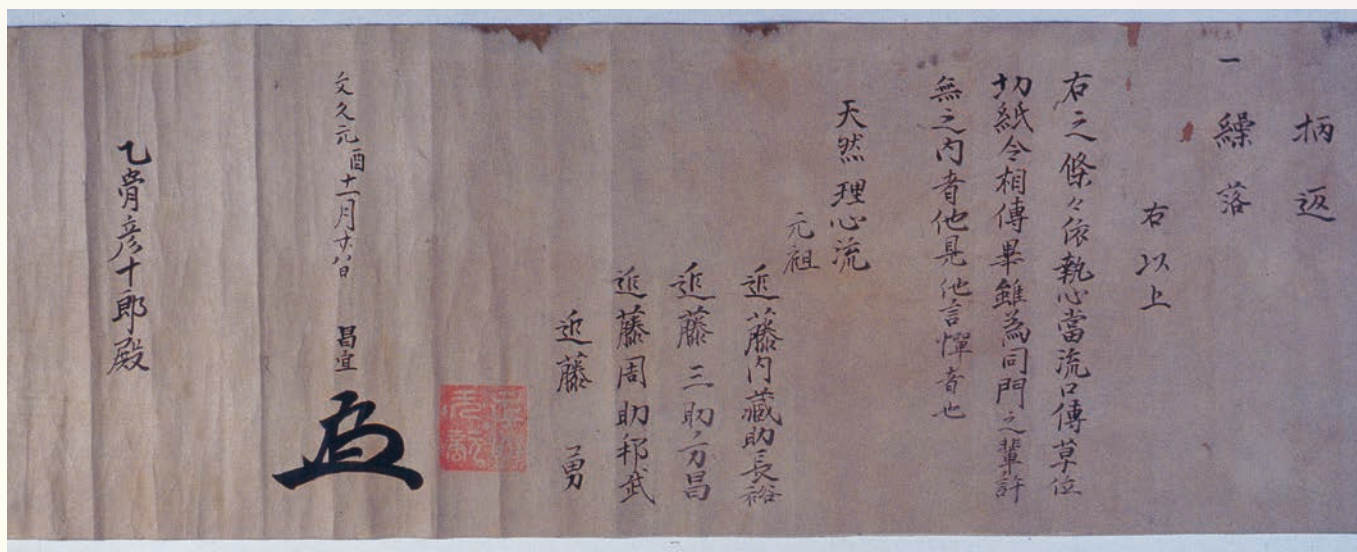 柄返
一 繰落
右以上
右之條々依執心當流口傳草位
切紙令相傳畢雖為同門之輩許
無之内者他見他言憚者也
天然理心流
元祖
近藤内藏助長裕
近藤三助方昌
近藤周助邦武
近藤勇
昌宜
文久元酉十一月廿八日
彦十郎殿